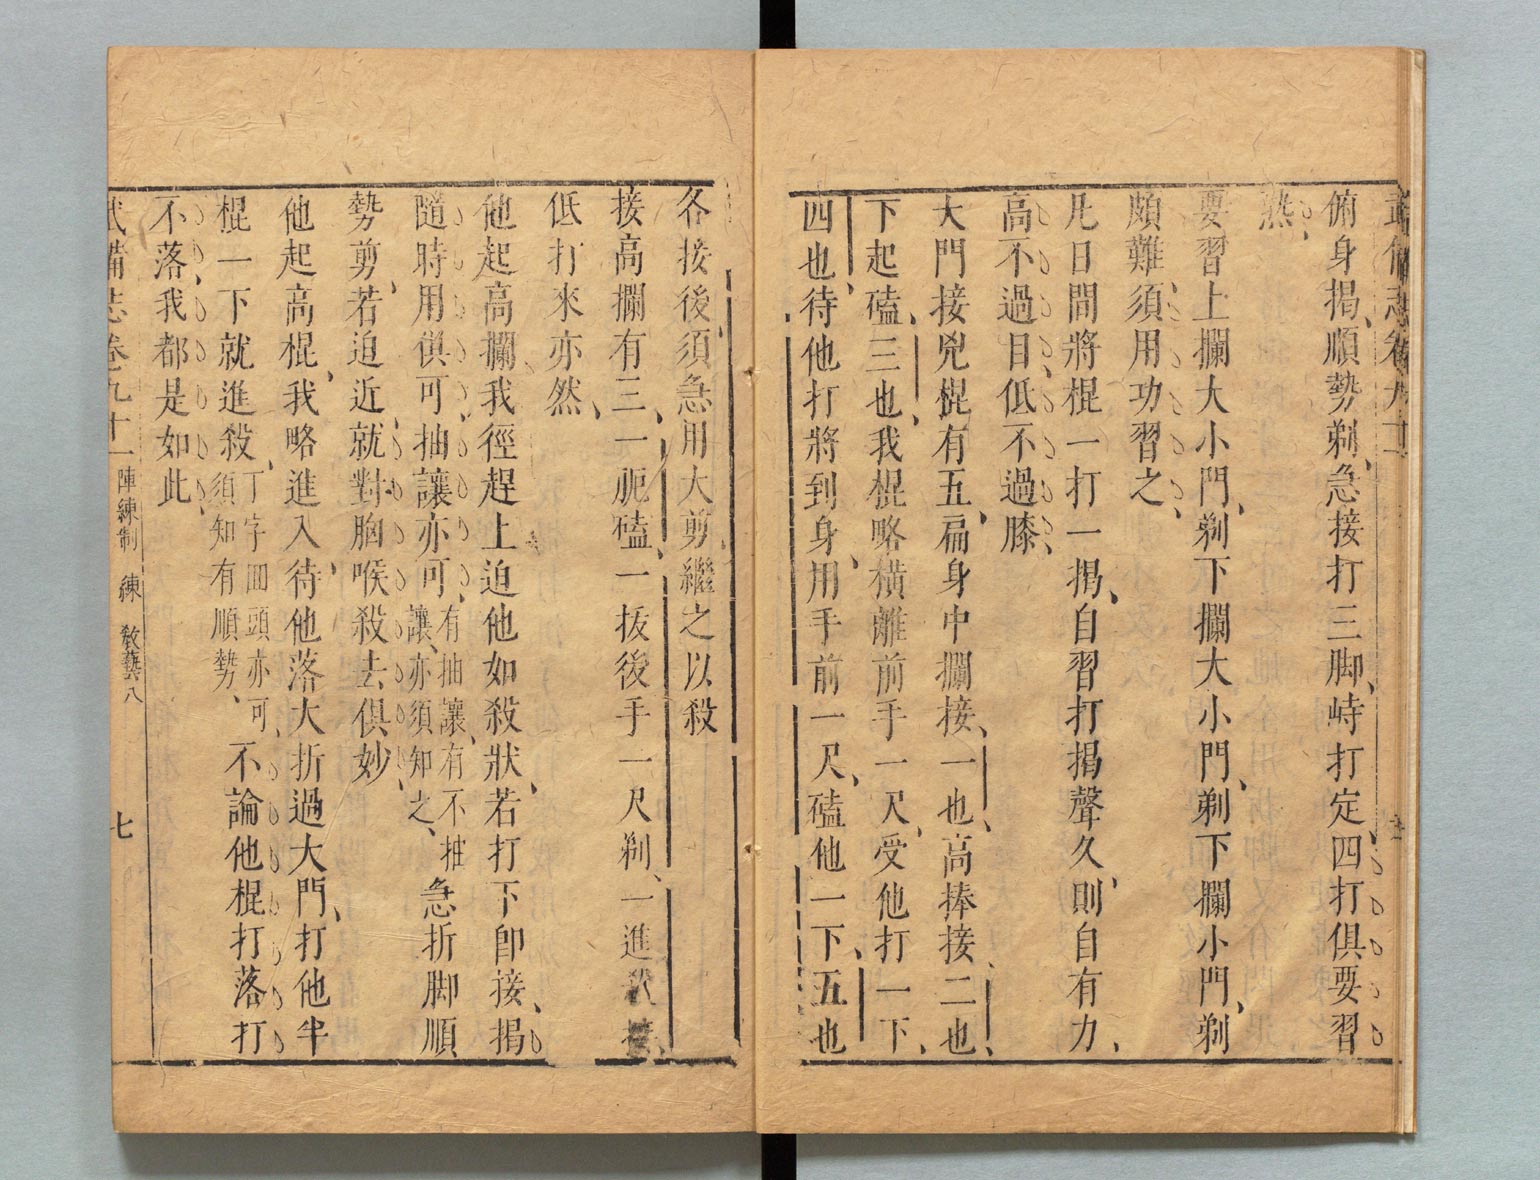 俯身揭順勢剃急接打三脚峙打定四打俱要習
熟
要習上攔大小門剃下攔大小門剃下攔小門剃
頗難須用功習之
凡日間將棍一打一揭自習打揭聲久則自有力
高不過目低不過膝
大門接兇棍有五扁身中攔接一也高捧接二也
下起磕三也我棍略橫離前手一尺受他打一下
四也待他打將到身用手前一尺磕他一下五也
各接後須急用大剪繼之以殺
接高攔有三一軛磕一拔後手一尺剃一進
低打來亦然
他起高攔我徑趕上迫他如殺狀若打下卽接揭
隨時用俱可抽讓亦可有抽讓有不抽讓亦須知之急折脚順
勢剪若迫近就對胸喉殺去俱妙
他起高棍我略進入待他落大折過大門打他半
棍一下就進殺丁字回頭亦可須知有順勢不論他棍打落打
不落我都是如此
武備志卷九十一 陣練制 練 教藝八 七